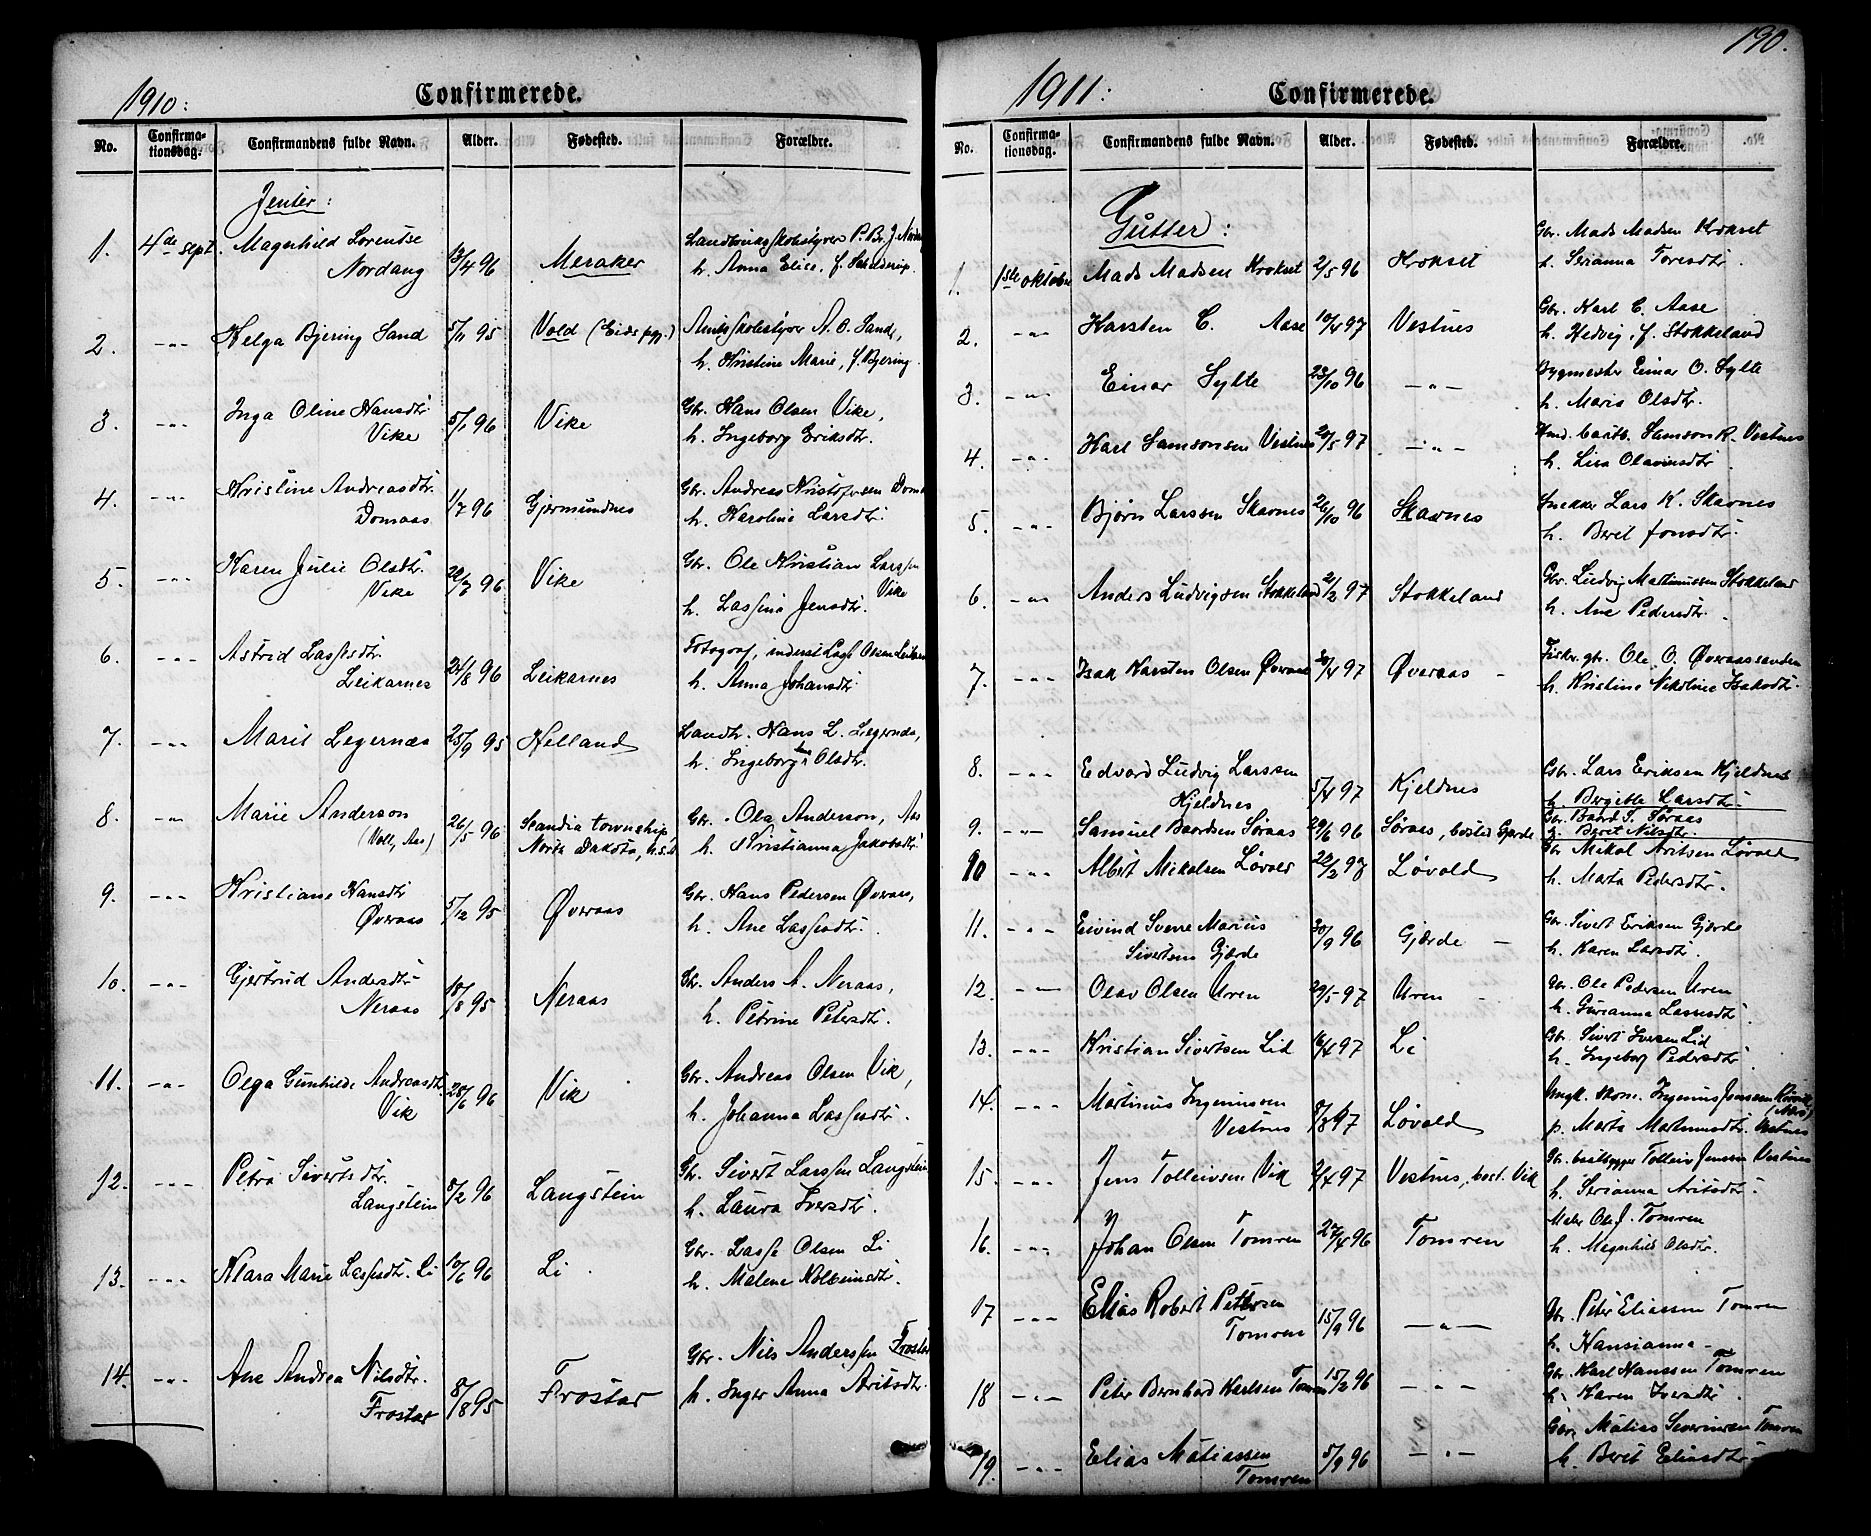 190.
1910:
Confirmerede.
No. Confirma-tionsdag. Confirmandens fulde Navn. Alder. Fødested. Forældre.
Jenter:
1. 4de sept. Magnhild Lorentse Nordang 13/4 96 Meraker
h. Anna Elise, f.
2. -"- Helga Bjering Sand 5/11 95 Vold (Eids pgj.) Amtsskolestyrer A. O. Sand,
h. Kristine Marie, f. Bjering.
3. -"- Inga Oline Hansdtr. Vike 5/1 96 Vike Gbr. Hans Olsen Vike,
h. Ingeborg Eriksdtr.
4. -"- Kristine Andreasdtr. Domaas 1/7 96 Gjermundnes Gbr. Andreas Kristofersen
h. Karoline Larsdtr.
5. -"- Karen Julie Olsdtr. Vike 96 Vike Gbr. Ole Kristian Larssen Vike
h. Lassine Jensdtr.
6. -"- Astrid Lassesdtr. Leikarnes 24/8 96 Leikarnes Fotograf, inderst Olsen
h. Anna Johansdtr.
7. -"- Marit Legernæs 25/9 95 Helland Landh. Hans L. Legernæs,
h. Ingeborg Olsdtr.
8. -"- Marie Anderson (Voll, Aas) 26/5 96 Scandia township North Dakota, U.S.A. Gbr. Ola Anderson, Aas
h. Kristianna Jakobsdtr.
9. -"- Kristiane Hansdtr Øveraas 5/12 95 Øveraas Gbr. Hans Pedersen Øveraas,
h. Ane Lassesdtr.
10. -"- Gjertrud Andersdtr. Neraas 18/8 95 Neraas Gbr. Anders A. Neraas,
h. Petrine Petersdtr.
11. -"- Olga Gunhilde Andreasdtr. Vik 28/6 96 Vik Gbr. Andreas Olsen Vik,
h. Johanna Lassesdtr.
12. -"- Petra Sivertsdtr. Langstein 8/2 96 Langstein Gbr. Sivert Larssen Langstein
h. Laura Iversdtr.
13. -"- Klara Marie Lassesdtr. Li 10/6 96 Li Gbr. Lasse Olsen Li
h. Malene Kolbeinsdtr.
14. -"- Ane Andrea Nilsdtr. Frostar 8/8 95 Frostar Gbr. Nils Anderssen Frostar
h. Inger Anna Aritsdtr.
1911:
Confirmerede.
No. Confirma-tionsdag. Confirmandens fulde Navn. Alder. Fødested. Forældre.
Gutter:
1. 1ste oktober Mads Madsen Krokset 2/5 96 Krokset Gbr. Mads Madsen Krokset
h. Serianna Toresdtr.
2. -"- Karsten C. Aase 10/4 97 Vestnes Gbr. Karl C. Aase
h. Hedvig, f. Stokkeland
3. -"- Einar Sylte 23/10 96 -"- Bygmester Einar O. Sylte
h. Maria Olsdtr.
4. -"- Karl Samsonsen Vestnes 20/5 97 -"- Samson K. Vestnes
h. Lisa Olavinsdtr.
5. -"- Bjørn Larssen Skavnes 26/10 96 Skavnes Snekker Lars K. Skavnes
h. Beret Jonsdtr.
6. -"- Anders Ludvigsen Stokkeland 2/2 97 Stokkeland Gbr. Ludvig Martinussen Stokkeland
h. Ane Pedersdtr.
7. -"- Isak Karsten Olsen Øveraas 30/4 97 Øveraas Fisker, gbr. Ole O. Øveraassanden
h. Kristine Nikoline Isaksdtr.
8. -"- Edvard Ludvig Larssen Kjeldnes 5/4 97 Kjeldnes Gbr. Lars Eriksen Kjeldnes
h. Birgitte Larsdtr.
9. -"- Samuel Baardsen Søraas 29/6 96 Søraas, bosted Gjerde Gbr. Baard S. Søraas
h. Beret Nilsdtr.
10 -"- Albert Mikalsen Løvold 22/2 97 Løvold Gbr Mikal Aritsen Løvold
h. Marta Pedersdtr.
11. -"- Eivind Sverre Marius Sivertsen Gjerde 30/9 96 Gjærde Gbr. Sivert Eriksen Gjerde
h. Karen Larsdtr.
12. -"- Olav Olsen Uren 29/5 97 Uren Gbr. Ole Pedersen Uren
h. Gurianna Lassesdtr.
13. -"- Kristian Sivertsen Lid 16/4 97 Li Gbr. Sivert Iversen Lid
h. Ingeborg Pedersdtr.
14. -"- Martinus Ingeniussen Vestnes 8/8 97 Løvold Ungk. Ingenius Jenssen
p. Marta Martinusdtr. Vestnes
15. -"- Jens Tolleivsen Vik 2/4 97 Vestnes, bost. Vik Gbr. baatbygger Tolleiv Jenssen Vestnes
h. Serianna Aritsdtr.
16. -"- Johan Olsen Tomren 27/4 96 Tomren Maler Ole J. Tomren
h. Magnhild Olsdtr.
17 -"- Elias Robert Pettersen Tomren 15/9 96 -"- Gbr. Peter Eliassen Tomren
h. Hansianna -
18 -"- Peter Bernhard Karlsen Tomren 15/2 96 -"- Gbr. Karl Hanssen Tomren
h. Karen Iversdtr.
19. -"- Elias Matiassen Tomren 5/9 96 -"- Gbr. Matias Severinsen Tomren
h. Beret Eliasdtr.